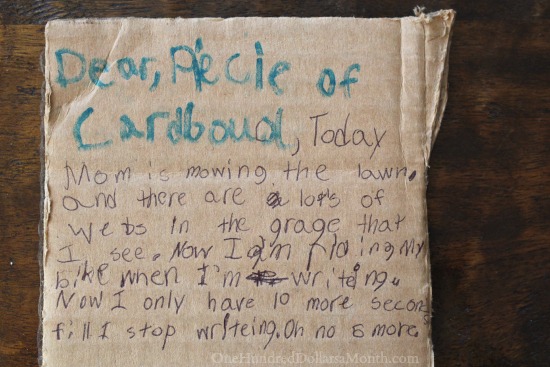 Dear, Piecie of
Cardboud, Today
Mom is mowing the lawn.
and there are a lots of
webs in the grage that
I see. Now I am riding my
bike when I'm writeing.
Now I only have 10 more secons
till I stop writeing. Oh no 5 more.
OneHundredDollarsaMonth.com